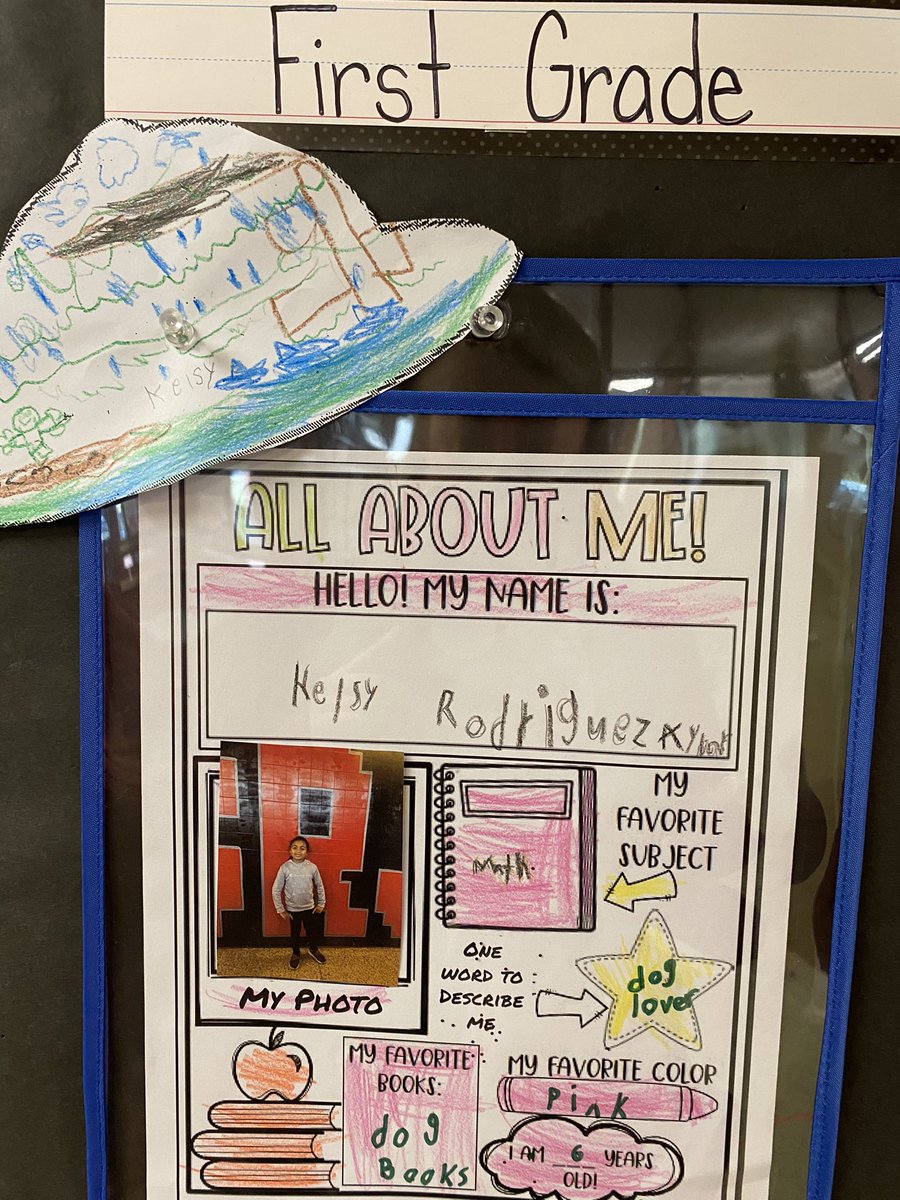 First Grade
Keisy
ALL ABOUT ME!
HELLO! MY NAME IS:
Kelsy Rodriguez
MY PHOTO
Math
MY
FAVORITE
SUBJECT
ONE
WORD TO
DESCRIBE
ME
dog
lover
MY FAVORITE
BOOKS:
dog
Books
MY FAVORITE COLOR
Pink
I AM 6 YEARS
OLD!